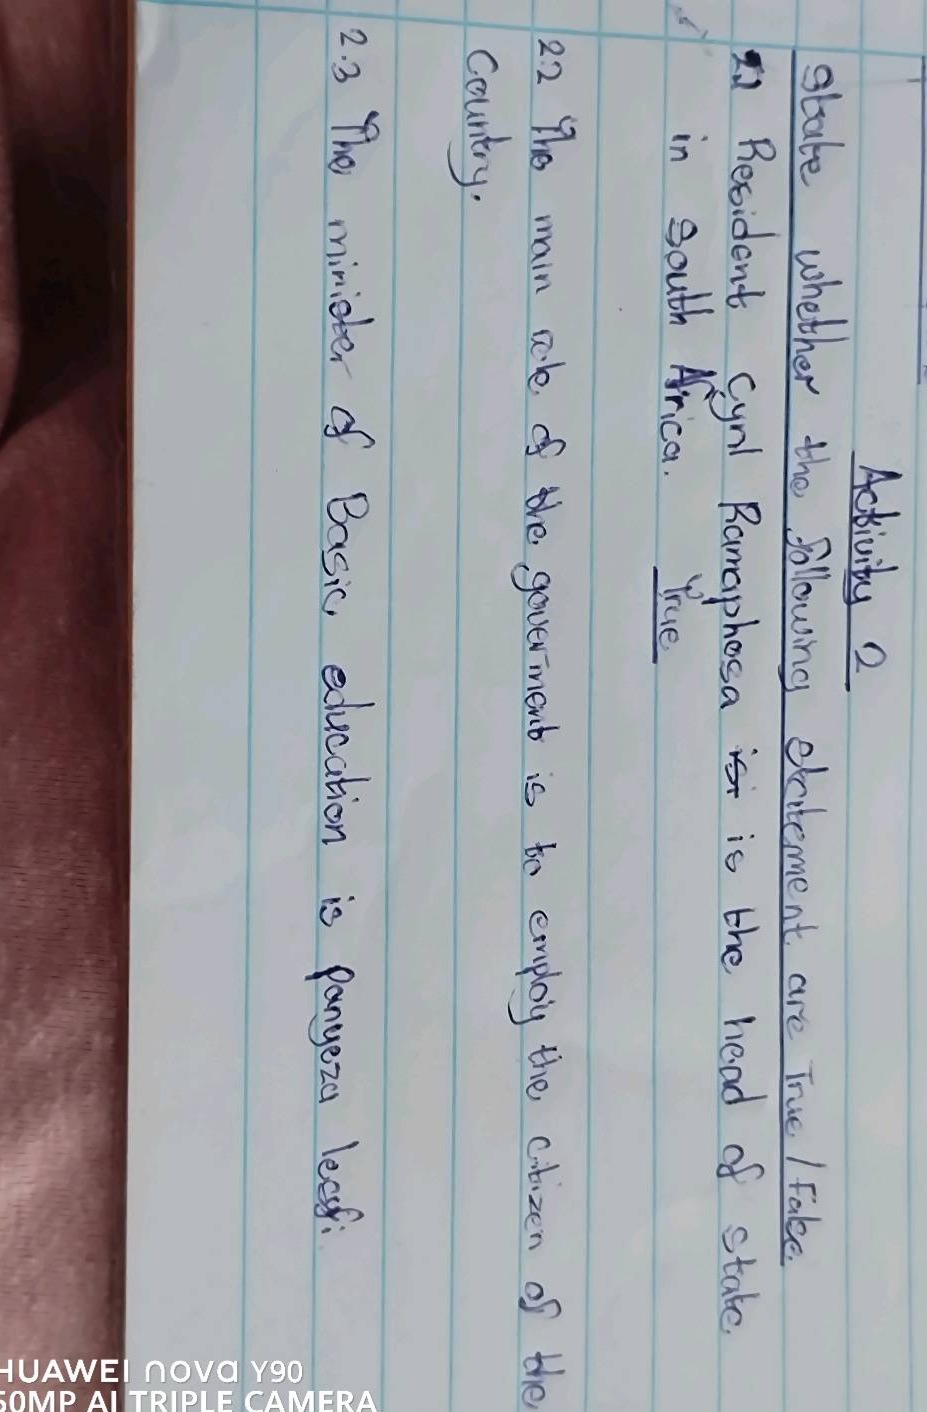 Activity 2
State whether the following statement are True / False
2.1 President Cyril Ramaphosa is is the head of state
in South Africa. True
2.2 The main role of the goverment is to employ the citizen of the
Country.
2.3 The minister of Basic education is panyeza
HUAWEI nova Y90
50MP AI TRIPLE CAMERA